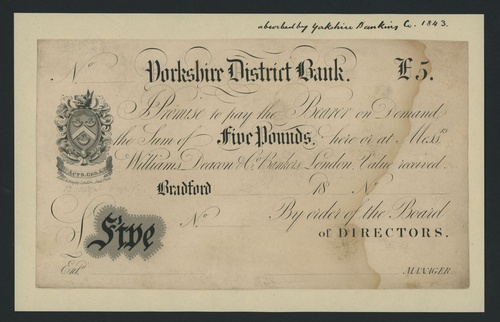 absorbed by Yorkshire Banking Co. 1843.
No Yorkshire District Bank. £5.
I Promise to pay the Bearer on Demand
the Sum of Five Pounds, here or at Messrs
Williams Deacon & Co Bankers London. Value received.
Bradford 18 No
No By order of the Board
£ Five of DIRECTORS.
Entd. MANAGER